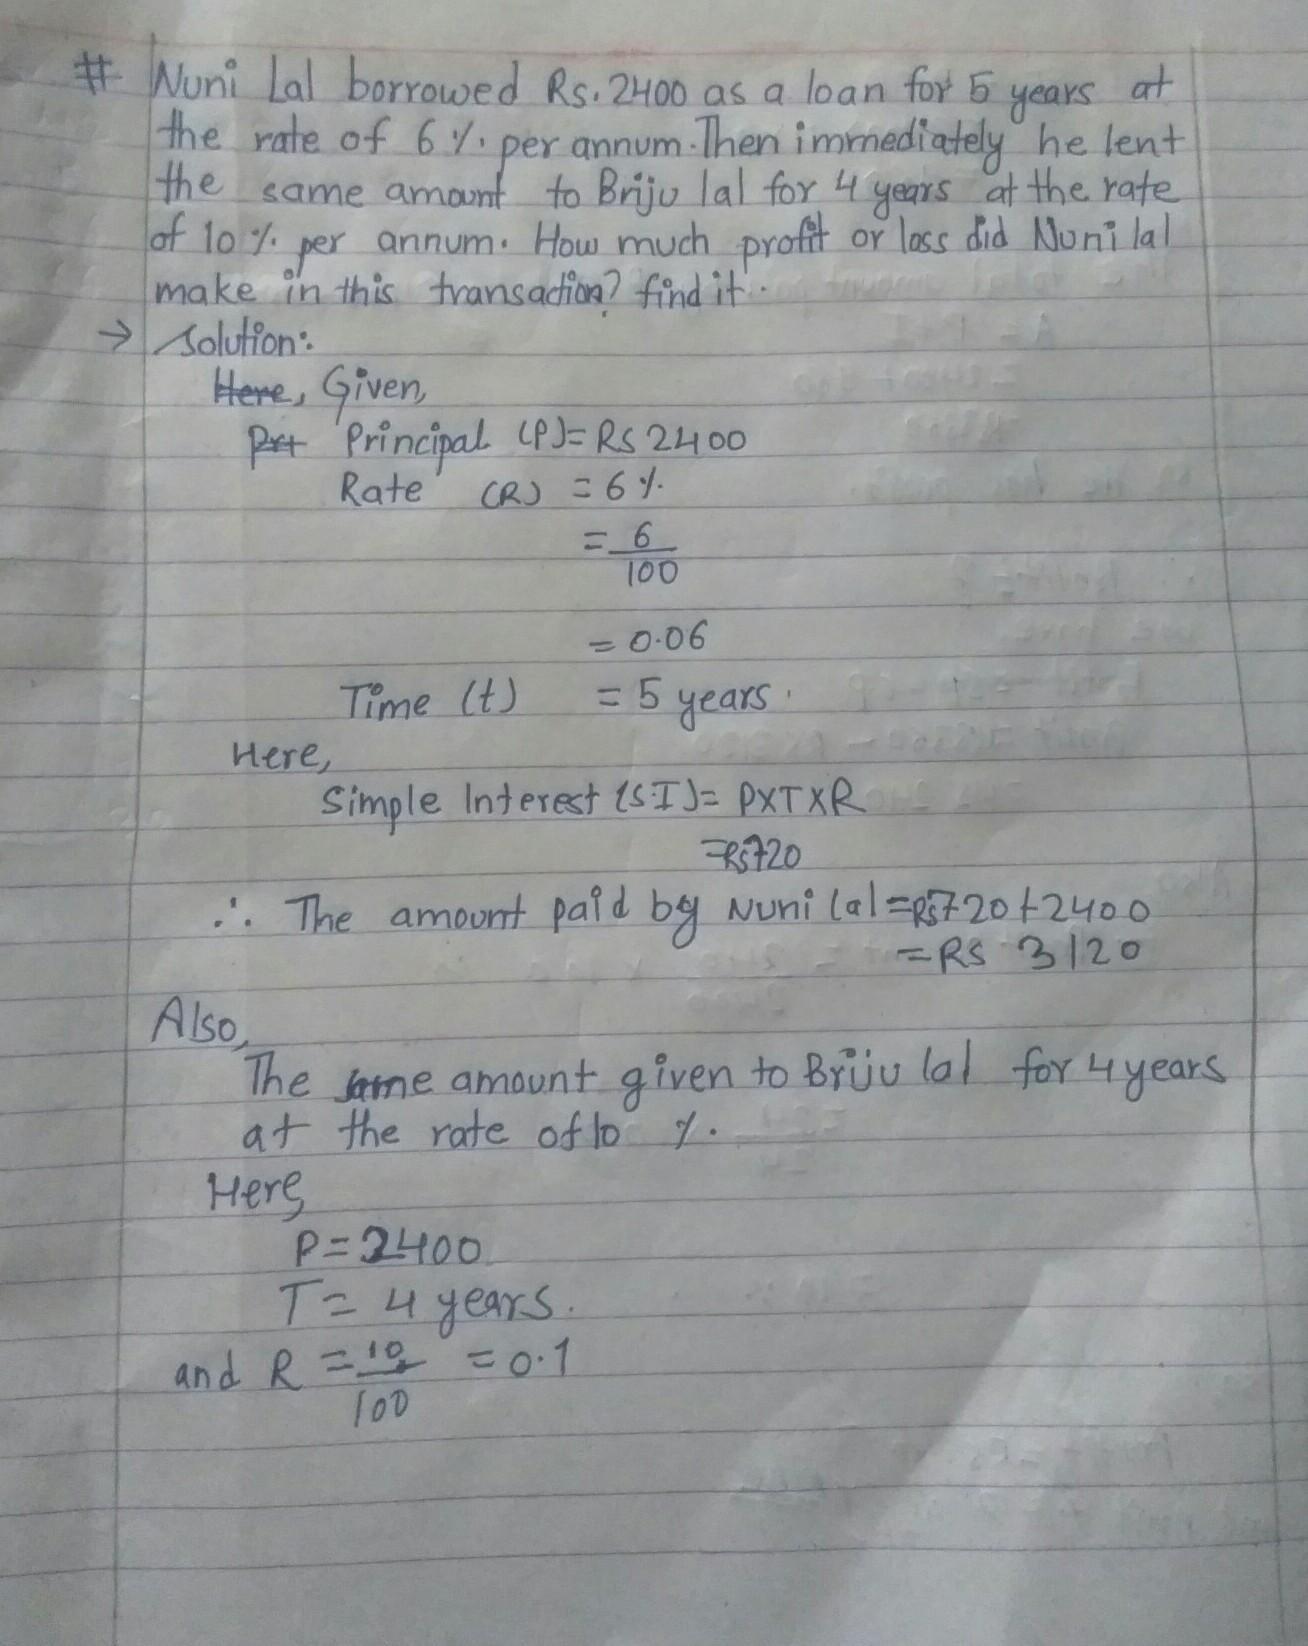 # Nuni Lal borrowed Rs. 2400 as a loan for 5 years at
the rate of 6 %. per annum. Then immediately he lent
the same amount to Briju lal for 4 years at the rate
of 10 %. per annum. How much profit or loss did Nuni lal
make in this transaction? find it.
→ Solution:
Here, Given,
Prt Principal (P) = RS 2400
Rate (R) = 6 %.
= 6
100
= 0.06
Time (t) = 5 years.
Here,
Simple Interest (S.I) = PXTXR
= Rs 720
∴ The amount paid by Nuni lal = Rs 720 + 2400
= RS 3120
Also,
The same amount given to Briju lal for 4 years
at the rate of 10 %.
Here,
P = 2400
T = 4 years.
and R = 10 = 0.1
100